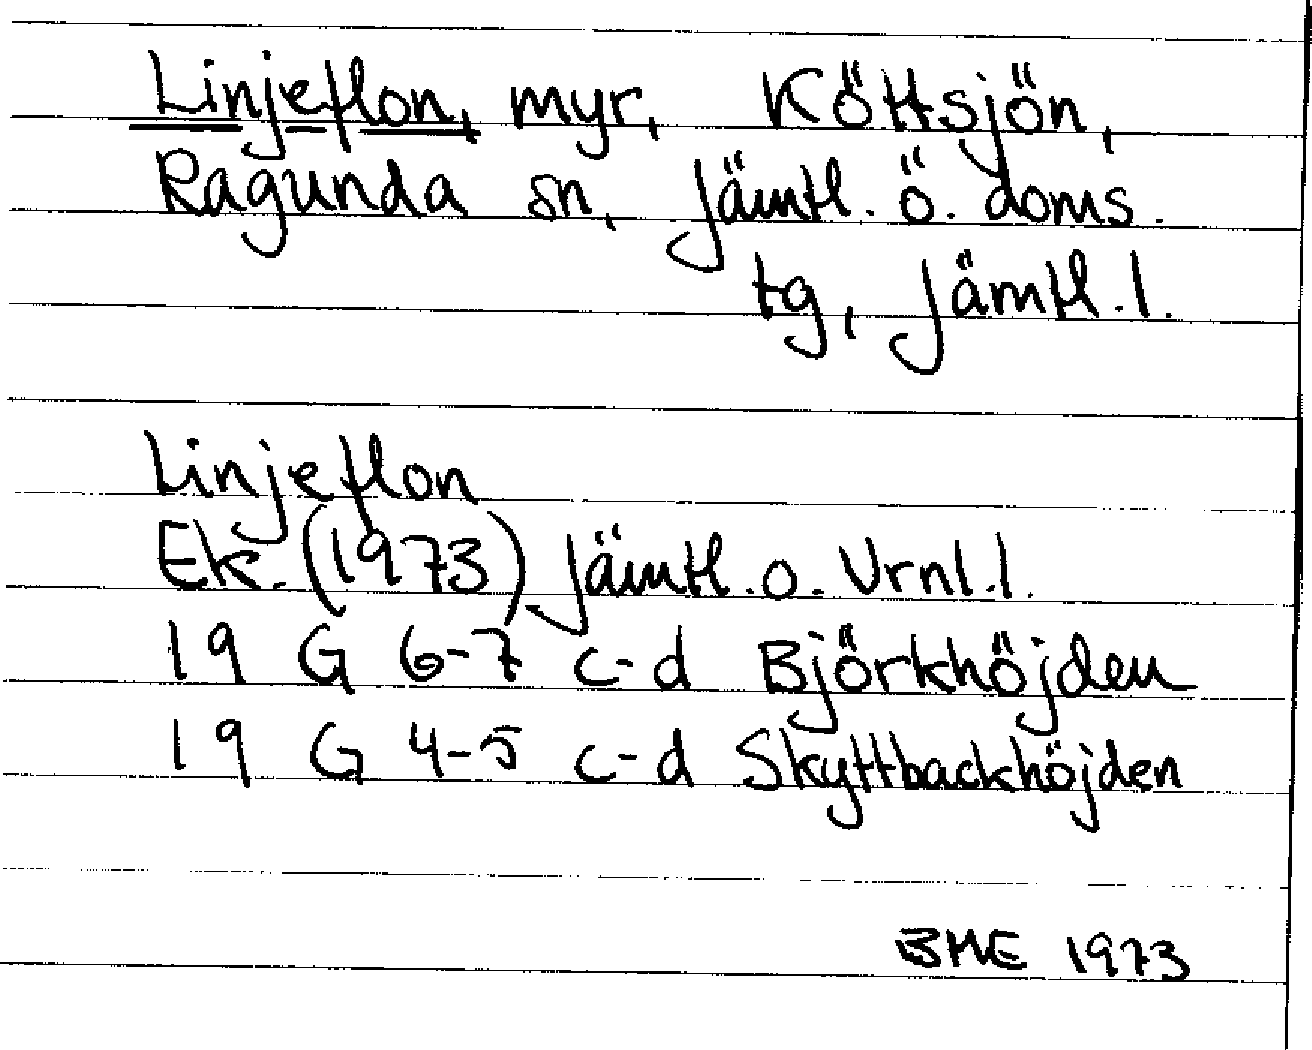 Linjeflon, myr, Köttsjön,
Ragunda sn, Jämtl. ö. doms.
tg, Jämtl. l.
Linjeflon
Ek. (1973) Jämtl. o. Vrnl. l.
19 G 6-7 c-d Björkhöjden
19 G 4-5 c-d Skyttbackhöjden
BME 1973